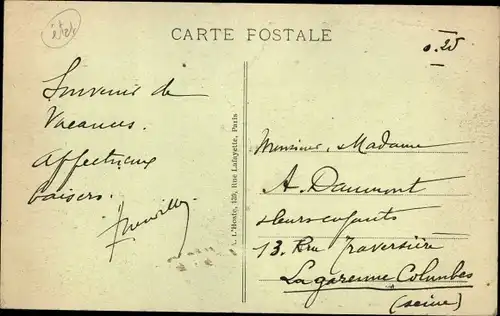 CARTE POSTALE
0.25
Souvenir de
Vacances.
Affectueux
baisers.
A. L'Hoste, 139, Rue Lafayette, Paris
Monsieur, Madame
A. Daumont
& leurs enfants
13. Rue Traversière
La garenne Colombes
(Seine)